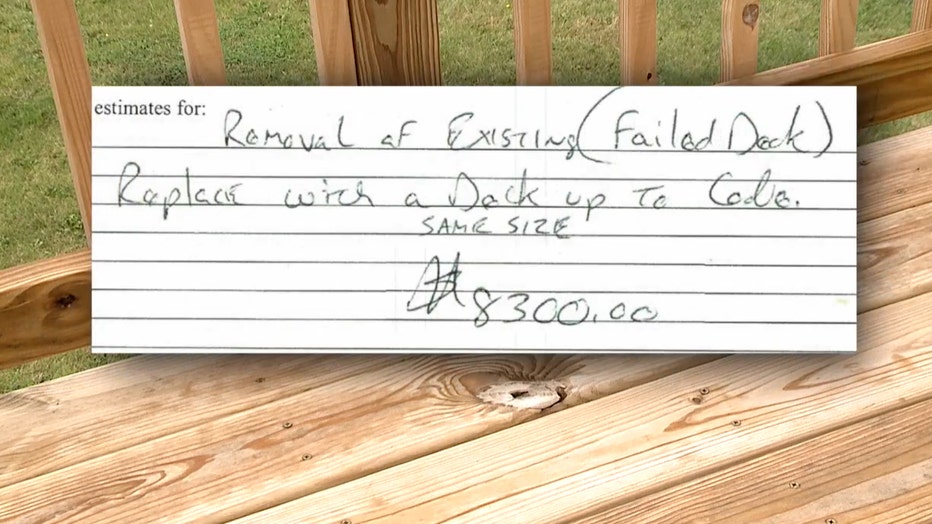 estimates for:
Removal of Existing (Failed Deck)
Replace with a Deck up To Code.
SAME SIZE
$8300.00